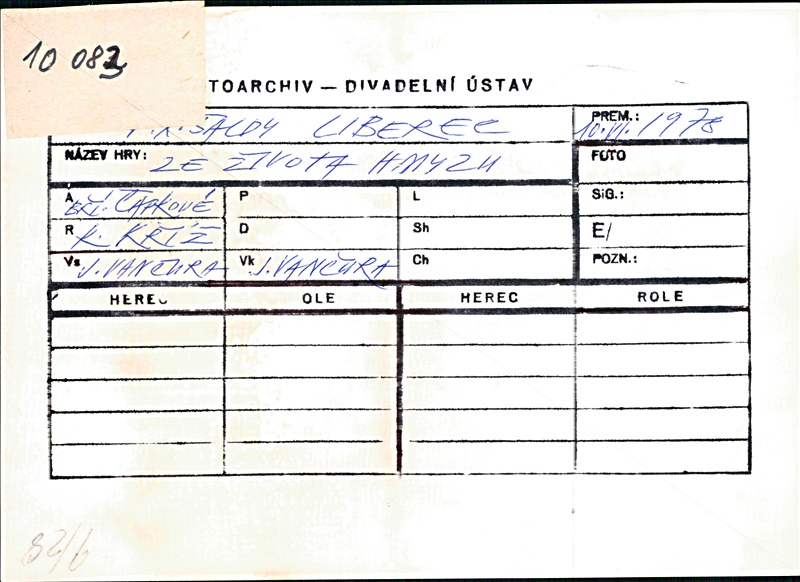 10 083
TOARCHIV — DIVADELNÍ ÚSTAV
F. X. ŠALDY LIBEREC PREM.: 10.VI. 1978
NÁZEV HRY: ZE ŽIVOTA HMYZU FOTO
A BŘÍ. ČAPKOVÉ P L SIG.:
R K. KŘÍŽ D Sh E/
Vs J. VANČURA Vk J. VANČURA Ch POZN.:
HEREC OLE HEREC ROLE
82/6